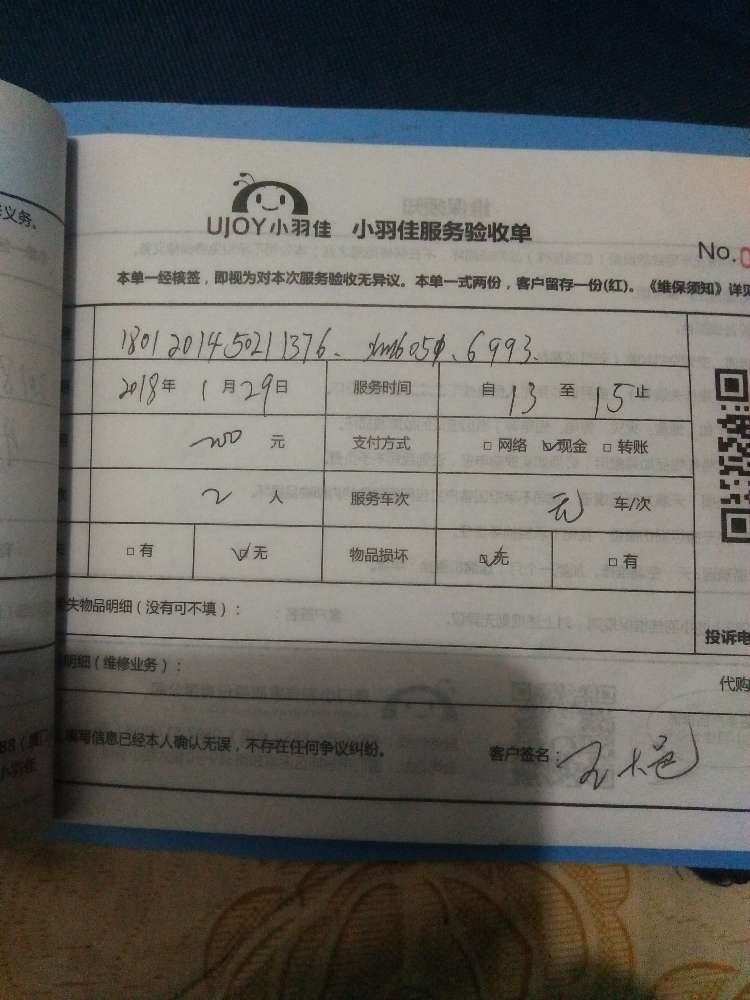 义务。
UJOY小羽佳 小羽佳服务验收单
No.0
本单一经核签，即视为对本次服务验收无异议。本单一式两份，客户留存一份(红)。《维保须知》详见
1801201450211376、xm6050、6993.
2018年 1月29日 服务时间 自13至15止
200元 支付方式 □网络 ☑现金 □转账
2人 服务车次 无 车/次
□有 ☑无 物品损坏 ☑无 □有
失物品明细（没有可不填）：
投诉电
明细（维修业务）：
代购
填写信息已经本人确认无误，不存在任何争议纠纷。 客户签名：
88（厦门
小羽佳